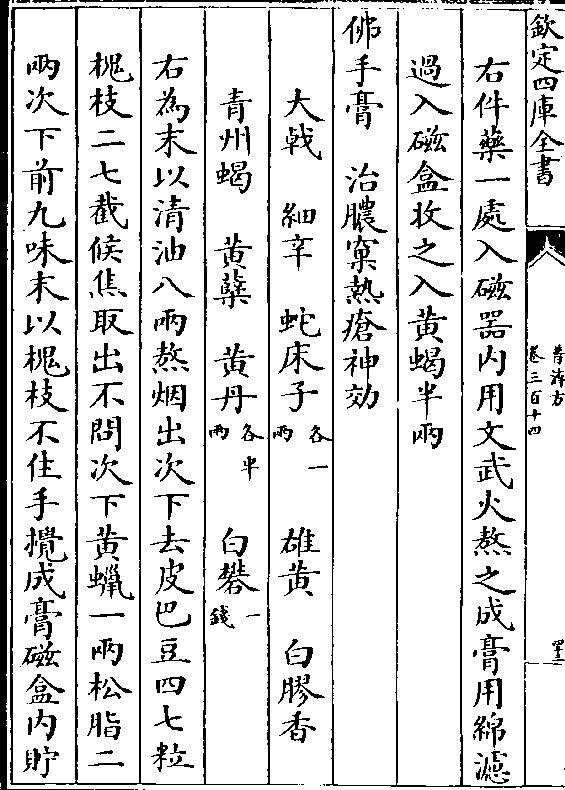 欽定四庫全書
普濟方
卷三百十四
右件藥一處入磁器内用文武火熬之成膏用綿濾
過入磁盒收之入黄蝎半兩
佛手膏 治膿窠熱瘡神効
大戟 細辛 蛇床子各一兩 雄黄 白膠香
青州蝎 黄蘗 黄丹各半兩 白礬一錢
右為末以清油八兩熬烟出次下去皮巴豆四七粒
槐枝二七截候焦取出不問次下黄蠟一兩松脂二
兩次下前九味末以槐枝不住手攪成膏磁盒内貯